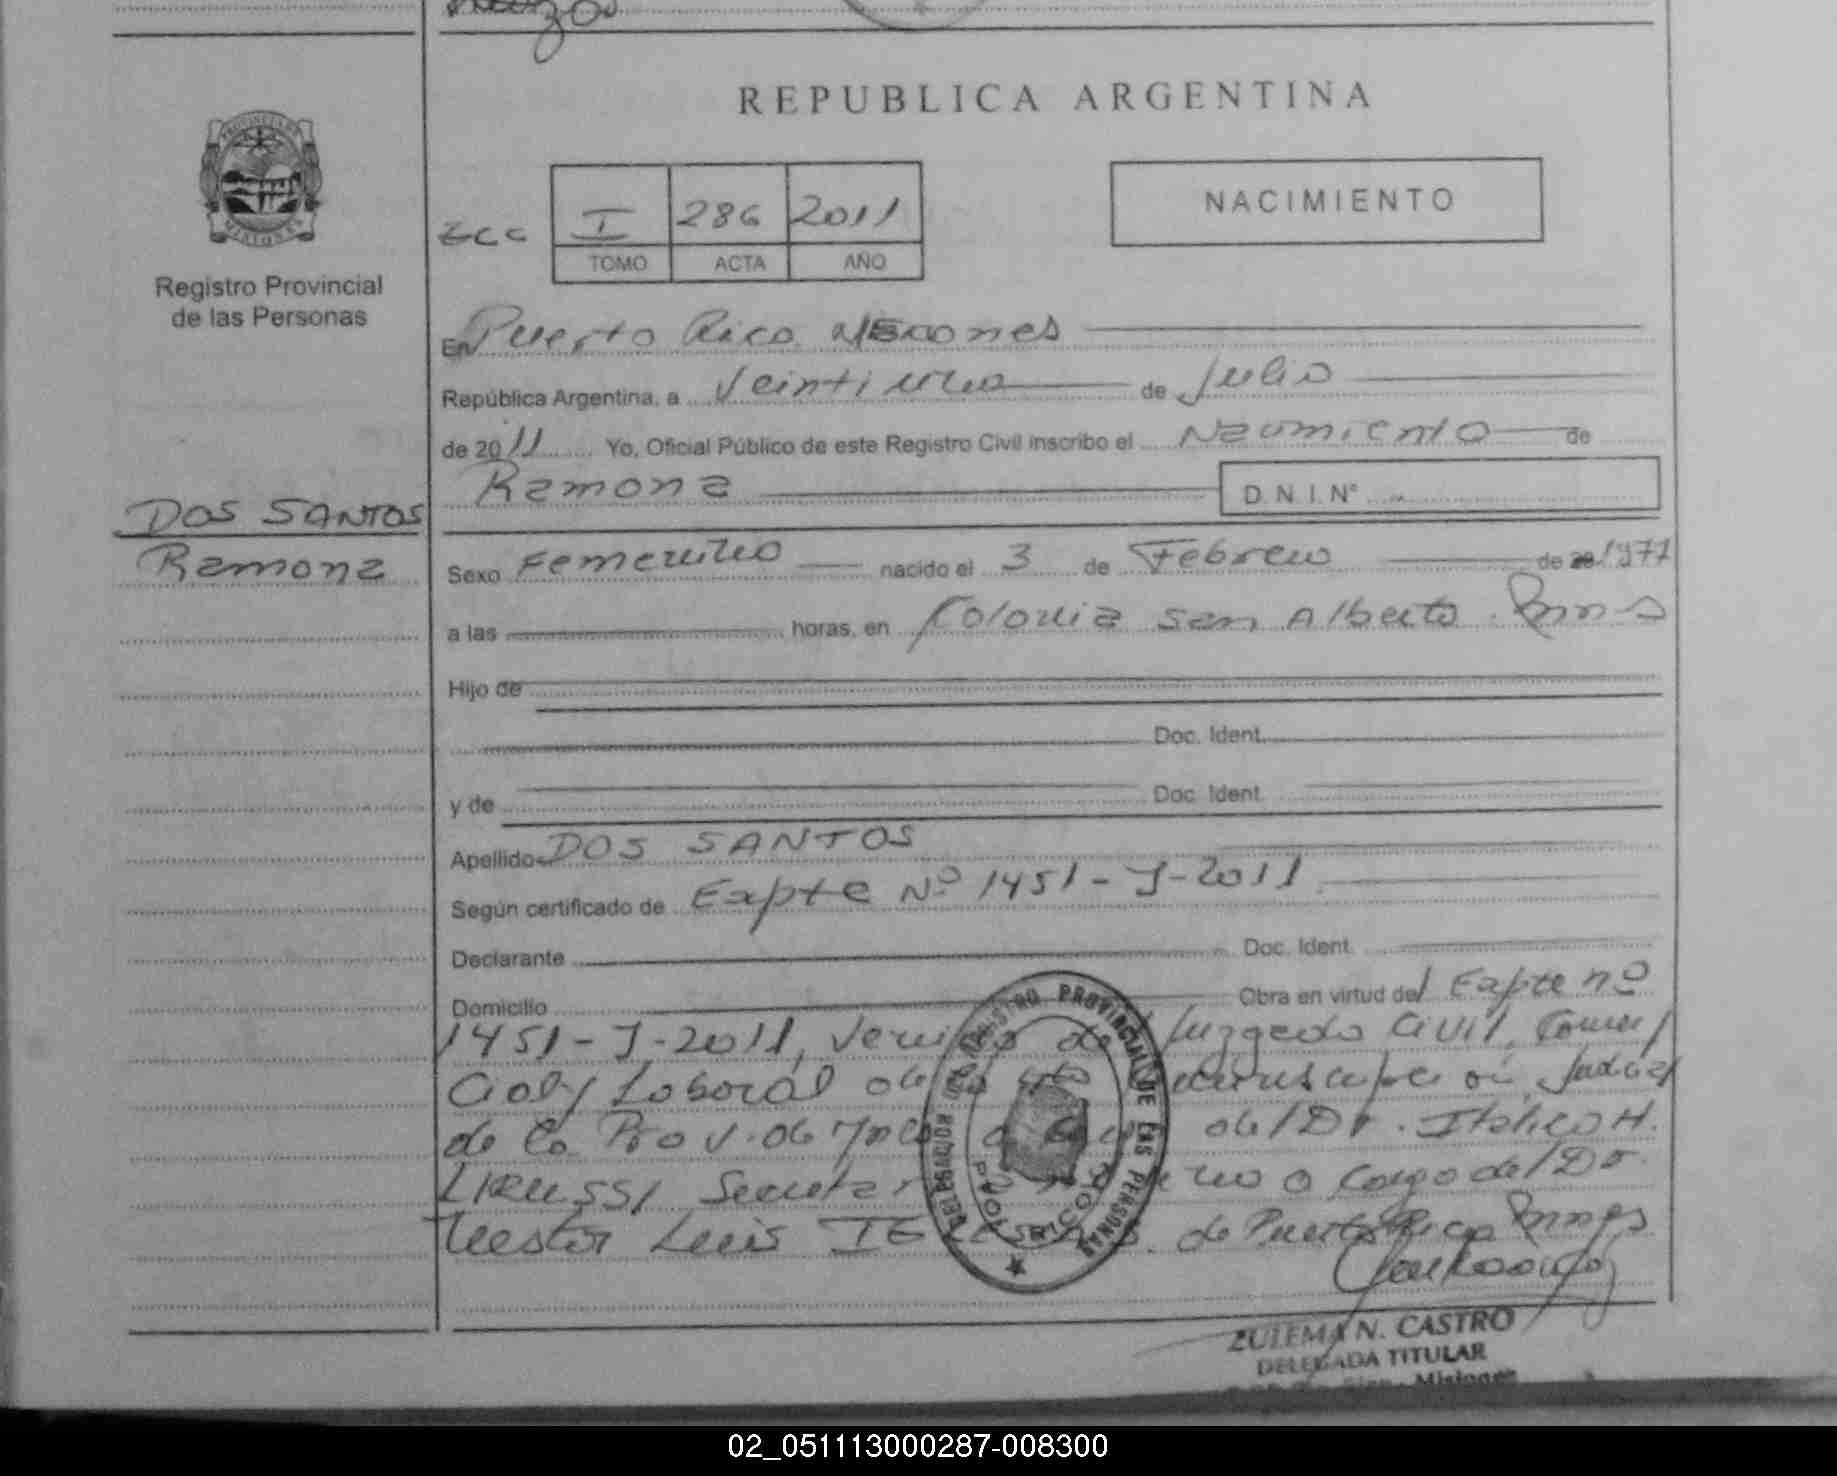 REPUBLICA ARGENTINA
PROVINCIA DE
MISIONES
Registro Provincial
de las Personas
I 286 2011
TOMO ACTA AÑO
NACIMIENTO
En Puerto Rico Misiones
República Argentina, a Veintiuno de Julio
de 2011 Yo, Oficial Público de este Registro Civil inscribo el Nacimiento de
Ramona D.N.I. Nº
DOS SANTOS
Ramona
Sexo Femenino nacido el 3 de Febrero de 20 1977
a las horas, en Colonia San Alberto. Mnes
Hijo de
Doc. Ident.
y de Doc. Ident.
Apellido DOS SANTOS
Según certificado de Expte Nº 1451-J-2011
Declarante Doc. Ident.
Domicilio Obra en virtud del Expte nº
1451-J-2011, del Juzgado Civil, Comer
cial y Laboral de la Judicial
de la Prov. de Mnes a del Dr. Italico H.
Secretaria a cargo del Dr.
Nestor Luis de Puerto Rico Mnes
REGISTRO PROVINCIAL DE LAS PERSONAS
DELEGACION
PTO. RICO
ZULEMA N. CASTRO
DELEGADA TITULAR
Misiones
02_051113000287-008300